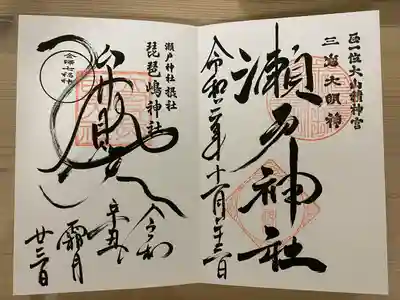 正一位大山積神宮
三島大明神
瀬戸神社
令和三年十一月二十三日
瀬戸神社 摂社
琵琶嶋神社
金沢七福神
弁財天
令和
辛丑
霜月
廿三日